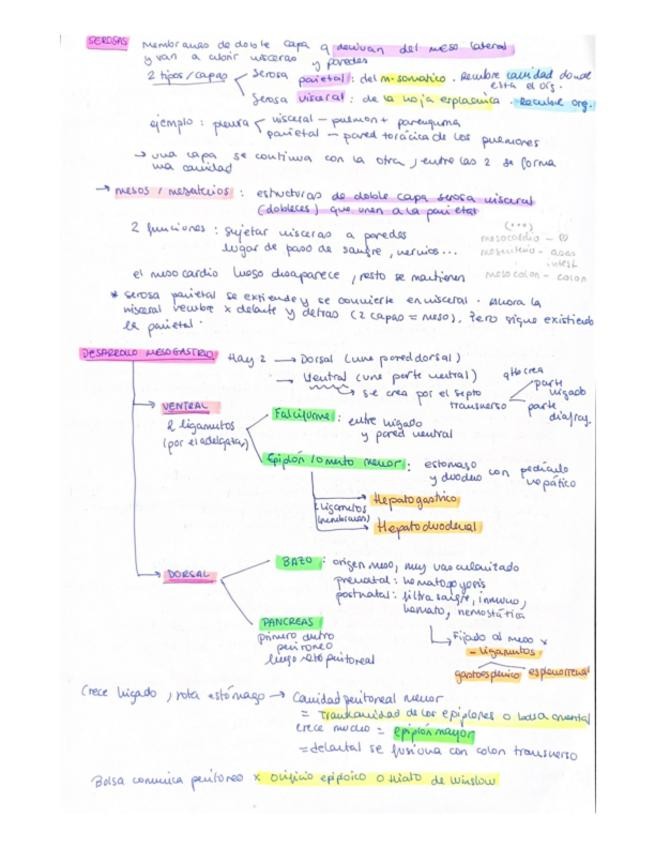 SEROSAS membranas de doble capa q derivan del meso lateral
y van a cubrir vísceras y paredes
2 tipos/capas
Serosa parietal: del m. somático. Recubre cavidad donde
está el órg.
Serosa visceral: de la hoja esplacnica. Recubre org.
ejemplo: pleura
visceral - pulmon + parenquima
parietal - pared torácica de los pulmones
→ una capa se continua con la otra, entre las 2 se forma
una cavidad
→ mesos / mesenterios: estructuras de doble capa serosa visceral
(dobleces) que unen a la parietal
2 funciones: sujetar vísceras a paredes
lugar de paso de sangre, nervios...
(***)
mesocardio - ♡
mesenterio - asas
intest.
mesocolon - colon
el meso cardio luego desaparece, resto se mantienen
* serosa parietal se extiende y se convierte en visceral. Ahora la
visceral recubre x delante y detras (2 capas = meso). Pero sigue existiendo
la parietal.
DESARROLLO MESOGASTRIO Hay 2 → Dorsal (une pared dorsal)
→ Ventral (une parte ventral)
↳ se crea por el septo
transverso
parte
hígado
parte
diafrag.
→ VENTRAL
2 ligamentos
Falciforme: entre higado
y pared ventral
Epiplón / omento menor: estomago
y duodeno con pedículo
hepático
Ligamentos
(membranas)
→ Hepatogastrico
→ Hepatoduodenal
→ DORSAL
BAZO: origen meso, muy vascularizado
prenatal: hematopoyesis
postnatal: filtra sangre, inmuno,
hemato, hemostática
↳ Fijado al meso x
- ligamentos
gastroesplenico esplenorrenal
PANCREAS
primero dentro
peritoneo
luego retroperitoneal
Crece higado, rota estómago → Cavidad peritoneal menor
= Trascavidad de los epiplones o bolsa omental
crece mucho = epiplón mayor
= delantal se fusiona con colon transverso
Bolsa comunica peritoneo x orificio epiploico o Hiato de Winslow